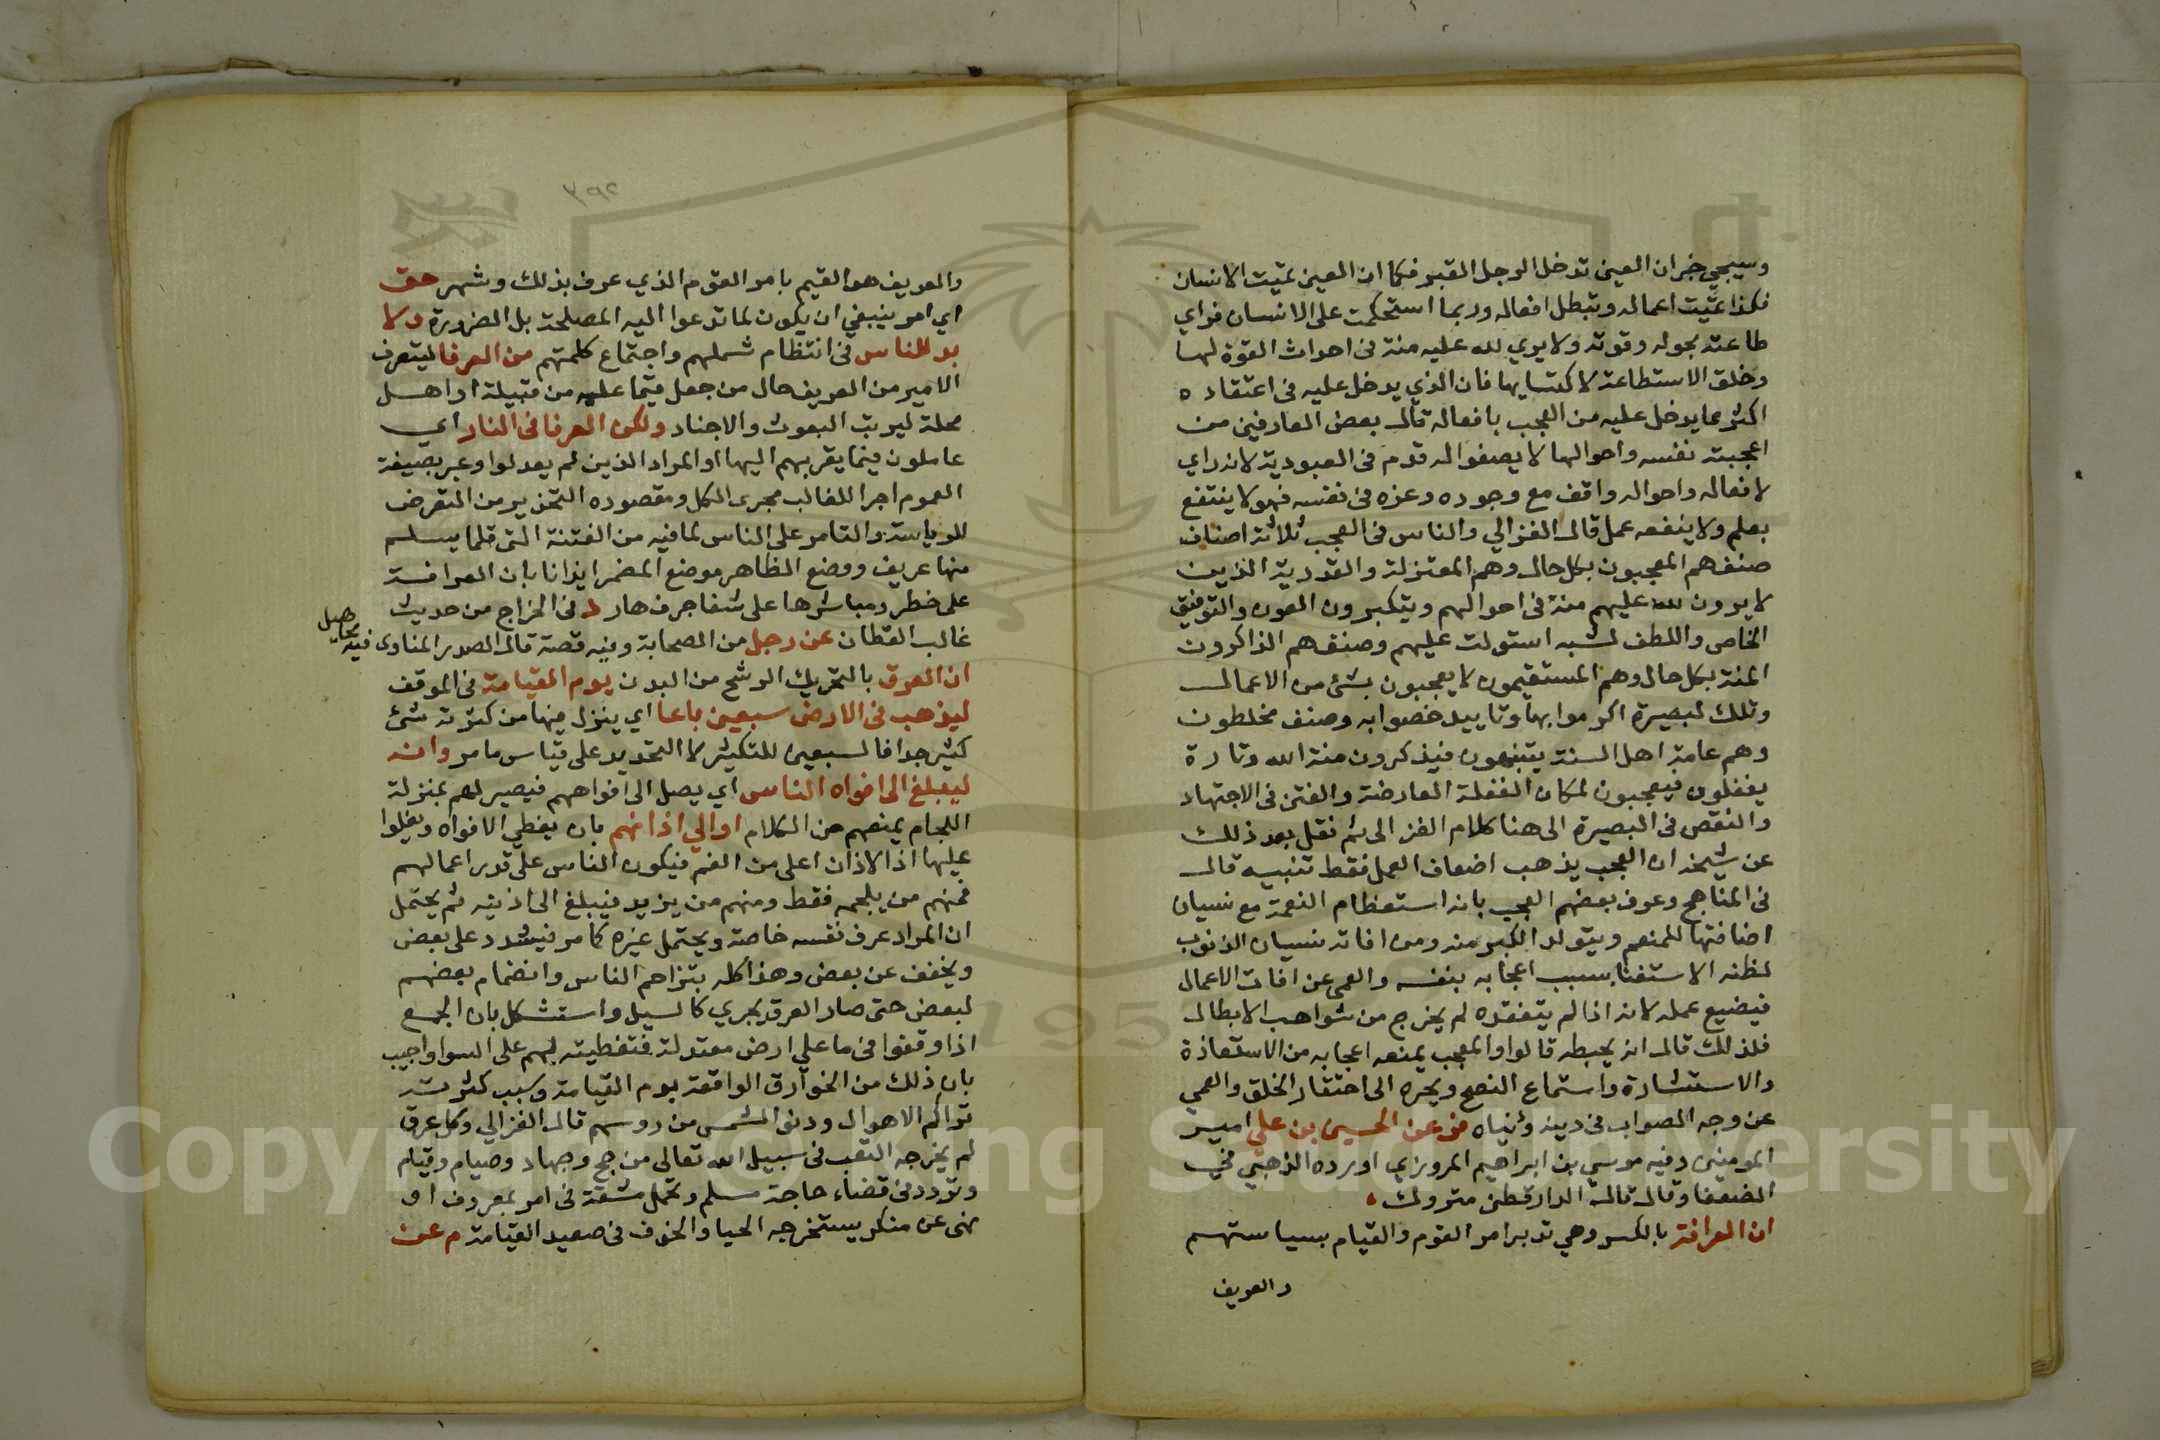 وسيجي خبر ان العين تدخل الرجل القبر فكما ان العين تميت الانسان
فكذا تميت اعماله وتبطل افعاله وربما استحكمت على الانسان فراي
طاعته بحوله وقوته ولا يري لله عليه منة في احداث القوة لها
وخلق الاستطاعة لاكتسابها فان الذي يدخل عليه في اعتقاده
اكثر مما يدخل عليه من العجب بافعاله قال بعض العارفين من
اعجبته نفسه واحوالها لا يصفو له قدم في العبودية لانه راي
لافعاله واحواله واقف مع وجوده وعزه في نفسه فهو لا ينتفع
بعلم ولا ينفعه عمل قال الغزالي والناس في العجب ثلاثة اصناف
صنف هم المعجبون بكل حال وهم المعتزلة والقدرية الذين
لا يرون لله عليهم منة في احوالهم ويتكبرون العون والتوفيق
الخاص واللطف لشبه استولت عليهم وصنف هم الذاكرون
المنة بكل حال وهم المستقيمون لا يعجبون بشئ من الاعمال
وتلك لبصيرة اكرموا بها وتاييد خصوا به وصنف مخلطون
وهم عامة اهل السنة يتنبهون فيذكرون منة الله وتارة
يغفلون فيعجبون لمكان الغفلة العارضة والفتن في الاجتهاد
والنقص في البصيرة الى هنا كلام الغزالى ثم نقل بعد ذلك
عن شيخه ان العجب يذهب اضعاف العمل فقط تنبيه قال
في المناهج وعرف بعضهم العجب بانه استعظام النعمة مع نسيان
اضافتها للمنعم ويتولد الكبر منه ومن افاته نسيان الذنوب
لظنه الاستغنا بسبب اعجابه بنفسه والعمى عن افات الاعمال
فيضيع عمله لانه اذا لم يتفقده لم يخرج من شواهب الابطال
فلذلك قال انه يحبطه قالوا والمعجب يمنعه اعجابه من الاستعاذة
والاستشارة واستماع النصح ويجره الى احتقار الخلق والعمى
عن وجه الصواب في دينه ودنياه فر عن الحسين بن علي امير
المومنين وفيه موسي بن ابراهيم المروزي اورده الذهبي في
الضعفا وقال قال الدارقطني متروك
ان العرافة بالكسر وهي تدبر امر القوم والقيام بسياستهم
والعريف
٣٩٢
والعريف هو القيم بامر القوم الذي عرف بذلك وشهر حق
اي امر ينبغي ان يكون لما تدعوا اليه المصلحة بل الضرورة ولا
بد للناس في انتظام شملهم واجتماع كلمتهم من العرفا ليتعرف
الامير من العريف حال من جعل قيما عليه من قبيلة او اهل
محلة ليرتب البعوث والاجناد ولكن العرفا في النار اي
عاملون فيما يقربهم اليها او المراد الذين لم يعدلوا وعبر بصيغة
العموم اجرا للغالب مجرى الكل ومقصوده التحذير من التعرض
للرياسة والتامر على الناس لما فيه من الفتنة التي قلما يسلم
منها عريف ووضع الظاهر موضع المضمر ايذانا بان العرافة
على خطر ومباشرها على شفا جرف هار د في الخراج من حديث
غالب القطان عن رجل من الصحابة وفيه قصة قال الصدر المناوى فيه مجاهيل
ان العرق بالتحريك الرشح من البدن يوم القيامة في الموقف
ليذهب في الارض سبعين باعا اي ينزل فيها من كثرته شئ
كثير جدا فالسبعين للتكثير لا التحديد على قياس ما مر وانه
ليبلغ الى افواه الناس اي يصل الى افواههم فيصير لهم بمنزلة
اللجام يمنعهم من الكلام او الي اذانهم بان يغطي الافواه ويعلوا
عليها اذ الاذان اعلى من الفم فيكون الناس على قدر اعمالهم
فمنهم من يلجمه فقط ومنهم من يزيد فيبلغ الى اذنيه ثم يحتمل
ان المراد عرف نفسه خاصة ويحتمل غيره كما مر فيشدد على بعض
ويخفف عن بعض وهذا كله بتزاحم الناس وانضمام بعضهم
لبعض حتى صار العرق يجري كالسيل واستشكل بان الجمع
اذا وقفوا في ما علي ارض معتدلة فتغطيته لهم على السوا واجيب
بان ذلك من الخوارق الواقعة يوم القيامة وسبب كثرته
تراكم الاهوال ودنو الشمس من روسهم قال الغزالي وكل عرق
لم يخرجه التعب في سبيل الله تعالى من حج وجهاد وصيام وقيام
وتردد في قضاء حاجة مسلم وتحمل مشقة في امر بمعروف او
نهى عن منكر يستخرجه الحيا والخوف في صعيد القيامة م عن
Copyright © King Saud University
195